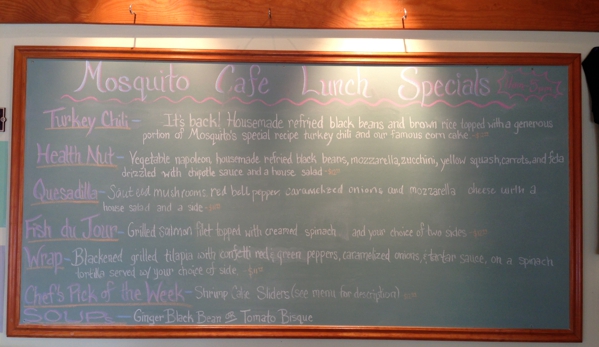 Mosquito Cafe Lunch Specials
Turkey Chili - It's back! Housemade refried black beans and brown rice topped with a generous
portion of Mosquito's special recipe turkey chili and our famous corn cake -
Health Nut - Vegetable napoleon, housemade refried black beans, mozzarella, zucchini, yellow squash, carrots, and feta
drizzled with chipotle sauce and a house salad -
Quesadilla - Sautéed mushrooms red bell pepper caramelized onions and mozzarella cheese with a
house salad and a side -
Fish du Jour - Grilled salmon filet topped with creamed spinach and your choice of two sides -
Wrap - Blackened grilled tilapia with confetti red, green peppers, caramelized onions, & tartar sauce, on a spinach
tortilla served w/ your choice of side -
Chef's Pick of the Week - Shrimp Cake Sliders (see menu for description)
SOUP - Ginger Black Bean or Tomato Bisque